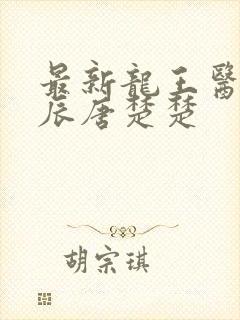 最新龍王醫
辰唐楚楚
胡宗琪